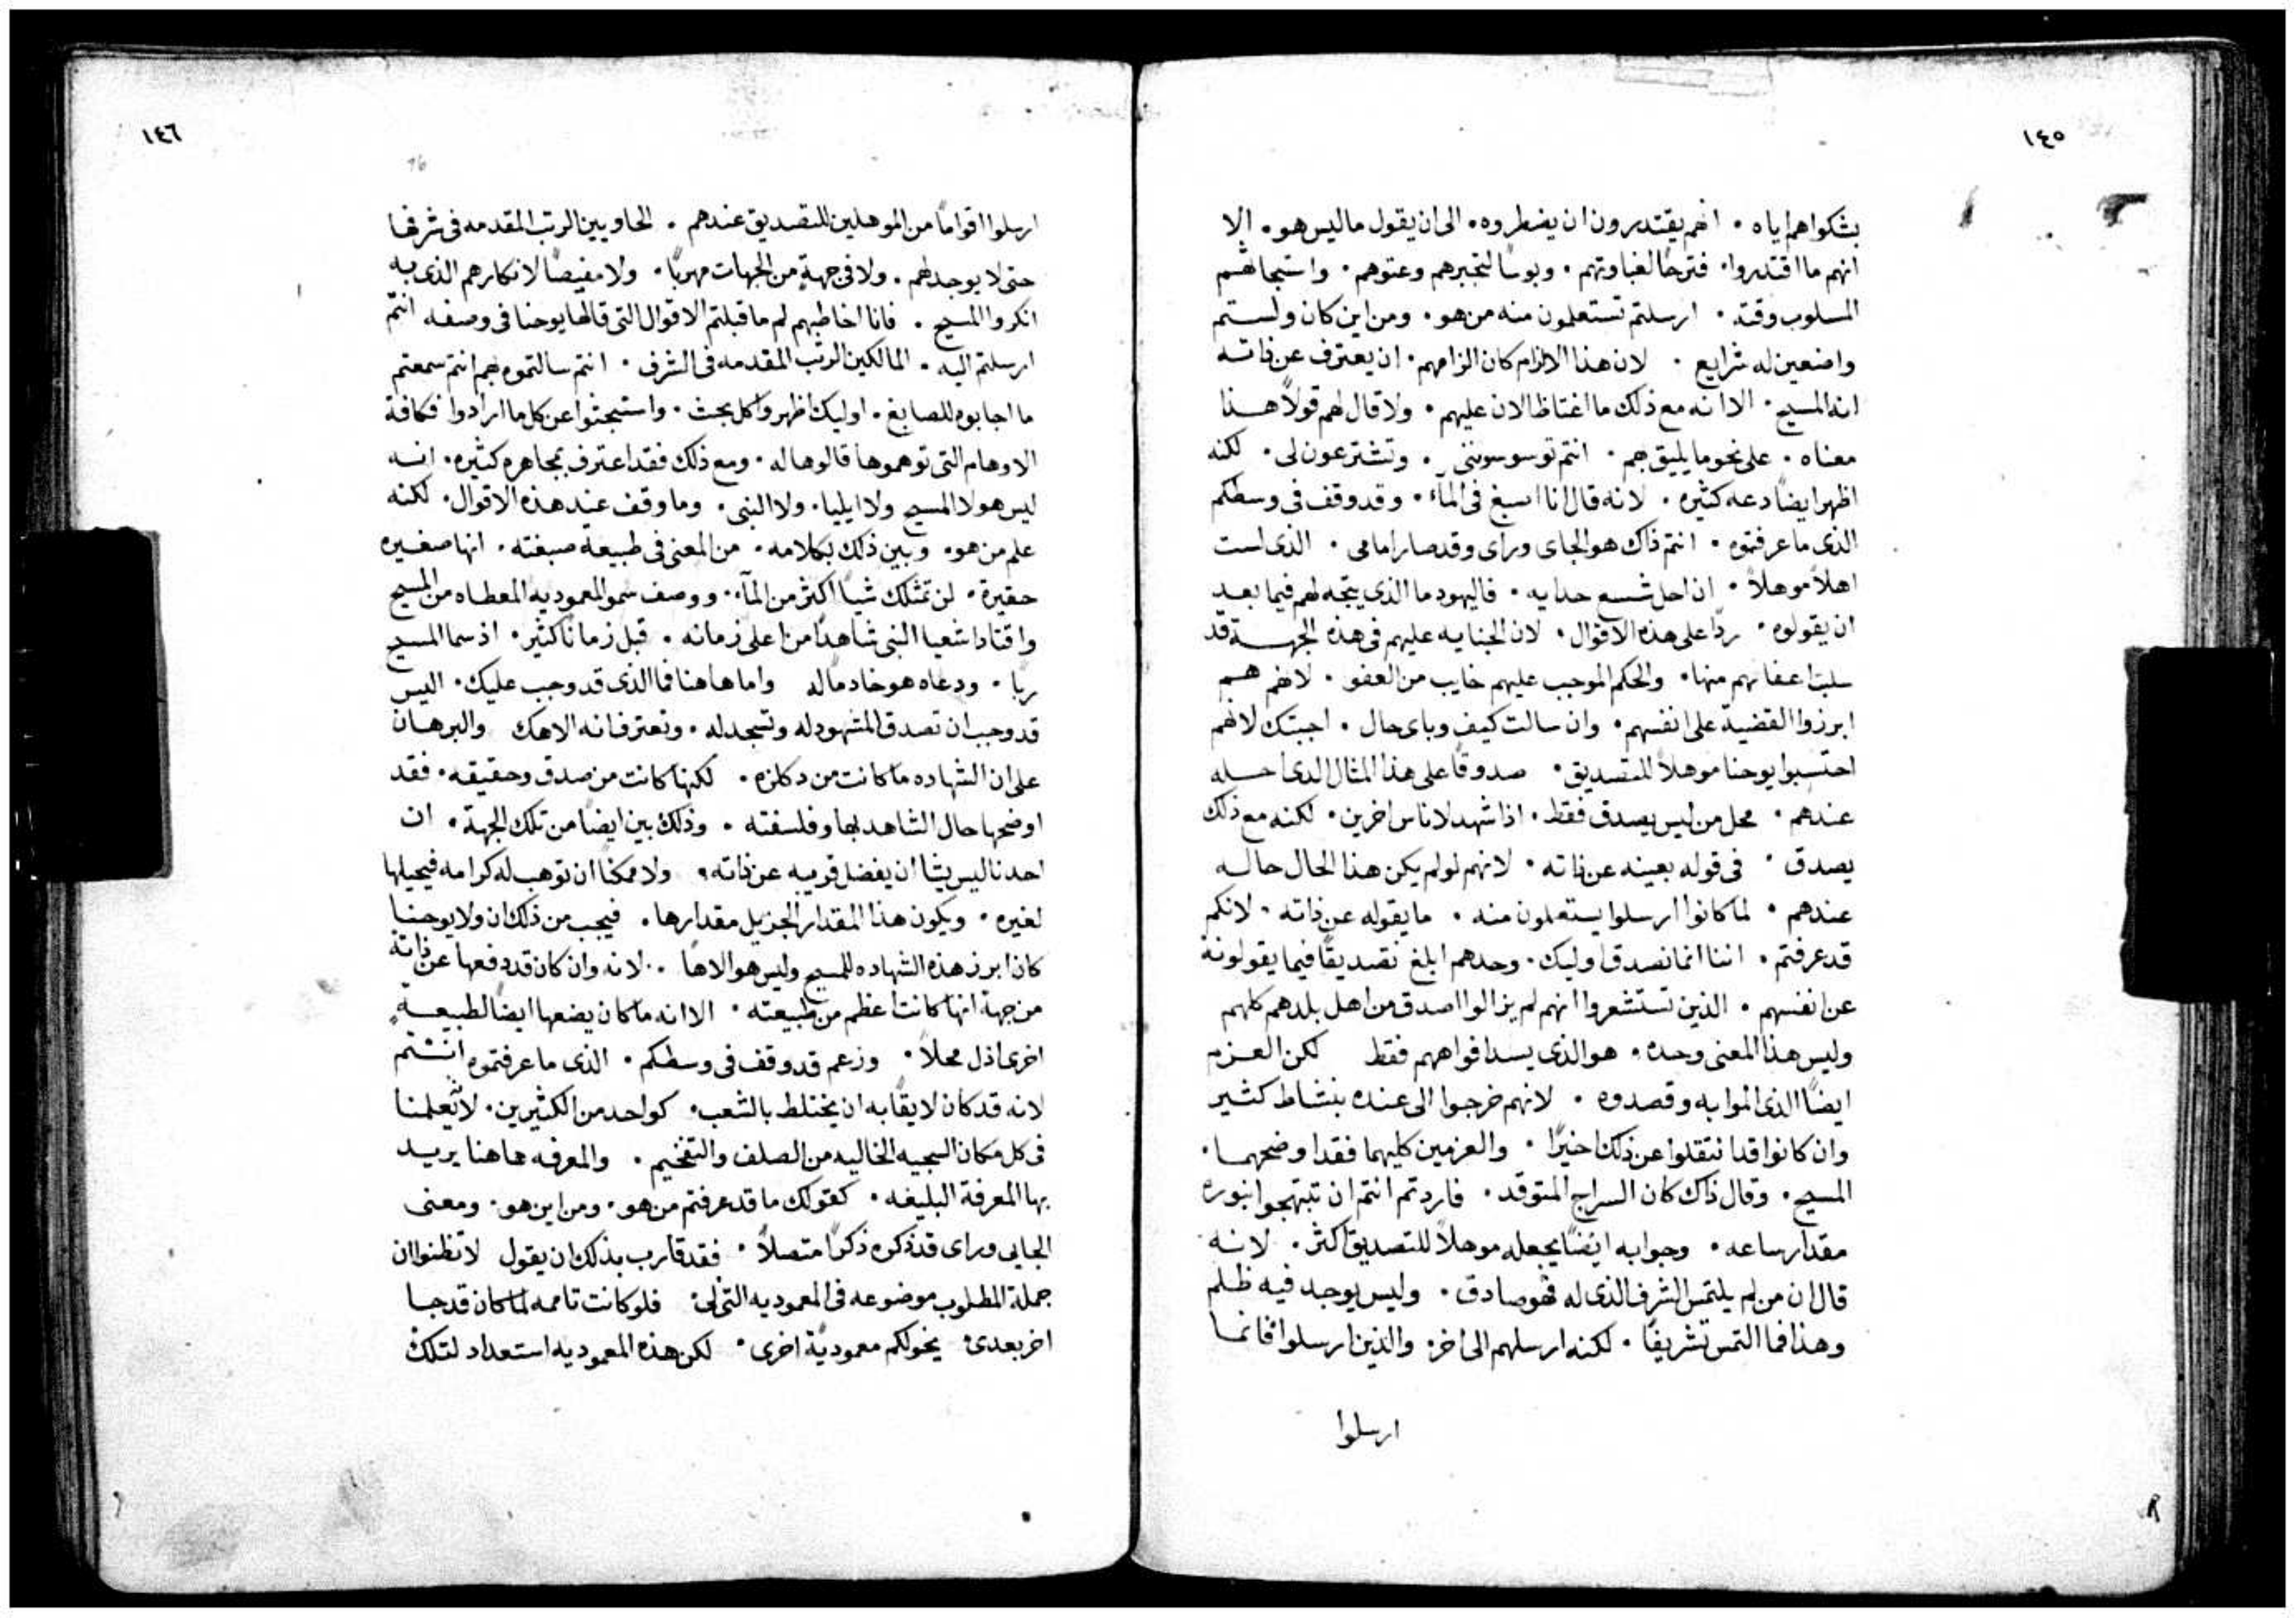 ١٤٥
بشكواهم اياه . انهم يقتدرون ان يضطروه . الى ان يقول ما ليس هو . الا
انهم ما اقتدروا . فترحًا لغباوتهم . وبوسًا لتجبرهم وعتوهم . واستبحاثهم
المسلوب وقته . ارسلتم تستعلمون منه من هو . ومن اين كان ولستم
واضعين له شرايع . لان هذا الالزام كان الزامهم . ان يعترف عن ذاته
انه المسيح . الا انه مع ذلك ما اغتاظ الان عليهم . ولا قال لهم قولاً هذا
معناه . على نحو ما يليق بهم . انتم توسوسونني . وتشترعون لى . لكنه
اظهر ايضًا دعه كثيره . لانه قال انا اصبغ فى المآء . وقد وقف فى وسطكم
الذى ما عرفتموه . انتم ذاك هو الجاى وراى وقد صار امامى . الذى لست
اهلاً موهلاً . ان احل شسع حدايه . فاليهود ما الذى يتجه لهم فيما بعد
ان يقولوه . ردًّا على هذه الاقوال . لان الجنايه عليهم فى هذه الجهة قد
سلبت اعفانهم منها . والحكم الموجب عليهم خايب من العفو . لانهم هم
ابرزوا القضية على انفسهم . وان سالت كيف وباى حال . اجبتك لانهم
احتسبوا يوحنا موهلاً للتصديق . صدوقًا على هذا المثال الذى احسله
عندهم . محل من ليس يصدق فقط . اذا شهد لاناس اخرين . لكنه مع ذلك
يصدق . فى قوله بعينه عن ذاته . لانهم لو لم يكن هذا الحال حاله
عندهم . لما كانوا ارسلوا يستعلمون منه . ما يقوله عن ذاته . لانكم
قد عرفتم . اننا انما نصدق اوليك . وحدهم ابلغ تصديقًا فيما يقولونه
عن انفسهم . الذين تستشعروا انهم لم يزالوا اصدق من اهل بلدهم كلهم
وليس هذا المعنى وحده . هو الذى يسد افواههم فقط لكن العزم
ايضًا الذى الموا به وقصدوه . لانهم خرجوا الى عنده بنشاط كثير
وان كانوا قد انتقلوا عن ذلك اخيرًا . والعزمين كليهما فقد اوضحهما .
المسيح . وقال ذاك كان السراج المتوقد . فاردتم انتم ان تبتهجوا بنوره
مقدار ساعه . وجوابه ايضًا يجعله موهلاً للتصديق اكثر . لانه
قال ان من لم يلتمس الشرف الذى له فهو صادق . وليس يوجد فيه ظلم
وهذا فما التمس تشريفًا . لكنه ارسلهم الى اخر . والذين ارسلوا فانما
ارسلوا
١٤٦
ارسلوا اقوامًا من الموهلين للتصديق عندهم . الحاويين الرتب المقدمه فى شرفها
حتى لا يوجد لهم . ولا فى جهةٍ من الجهات مهربًا . ولا مفيصًا لانكارهم الذى به
انكروا المسيح . فانا اخاطبهم لم ما قبلتم الاقوال التى قالها يوحنا فى وصفه انتم
ارسلتم اليه . المالكين الرتب المقدمه فى الشرف . انتم سالتموه بهم انتم سمعتم
ما اجابوه للصابغ . اوليك اظهروا كل بحث . واستبحثوا عن كل ما ارادوا فكافة
الاوهام التى توهموها قالوها له . ومع ذلك فقد اعترف بمجاهره كثيره . انه
ليس هو لا المسيح ولا ايليا . ولا النبى . وما وقف عند هذه الاقوال . لكنه
علم من هو . وبين ذلك بكلامه . من المعنى فى طبيعة صبغته . انها صغيره
حقيرة . لن تمتلك شيًا اكثر من المآء . ووصف سمو المعموديه المعطاه من المسيح
واقتاد اشعيا النبى شاهدًا من اعلى زمانه . قبل زمانًا كثير . اذ سما المسيح
ربًا . ودعاه هو خادمًا له واما هاهنا فما الذى قد وجب عليك . اليس
قد وجب ان تصدق المشهود له وتسجد له . وتعترف انه الاهك والبرهان
على ان الشهاده ما كانت من دكلزه . لكنها كانت من صدق وحقيقه . فقد
اوضحها حال الشاهد بها وفلسفته . وذلك بين ايضًا من تلك الجهة . ان
احدنا ليس يشا ان يفضل قريبه عن ذاته . ولا ممكنًا ان توهب له كرامه فيحيلها
لغيره . ويكون هذا المقدار الجزيل مقدارها . فيجب من ذلك ان ولا يوحنا
كان ابرز هذه الشهاده للمسيح وليس هو الاهًا . لانه وان كان قد دفعها عن ذاته
من جهة انها كانت اعظم من طبيعته . الا انه ما كان يضعها ايضًا لطبيعةٍ
اخرى اذل محلاً . وزعم قد وقف فى وسطكم . الذى ما عرفتموه انتم
لانه قد كان لايقًا به ان يختلط بالشعب . كواحد من الكثيرين . لاتعلمنا
فى كل مكان السجيه الخاليه من الصلف والتفخيم . والمعرفه هاهنا يريد
بها المعرفة البليغه . كقولك ما قد عرفتم من هو . ومن اين هو . ومعنى
الجايى وراى قد ذكره ذكرًا متصلاً . فقد قارب بذلك ان يقول لا تظنوا ان
جملة المطلوب موضوعه فى المعموديه التى لى . فلو كانت تامه لما كان قد جا
اخر بعدى . يخولكم معموديةً اخرى . لكن هذه المعموديه استعداد لتلك